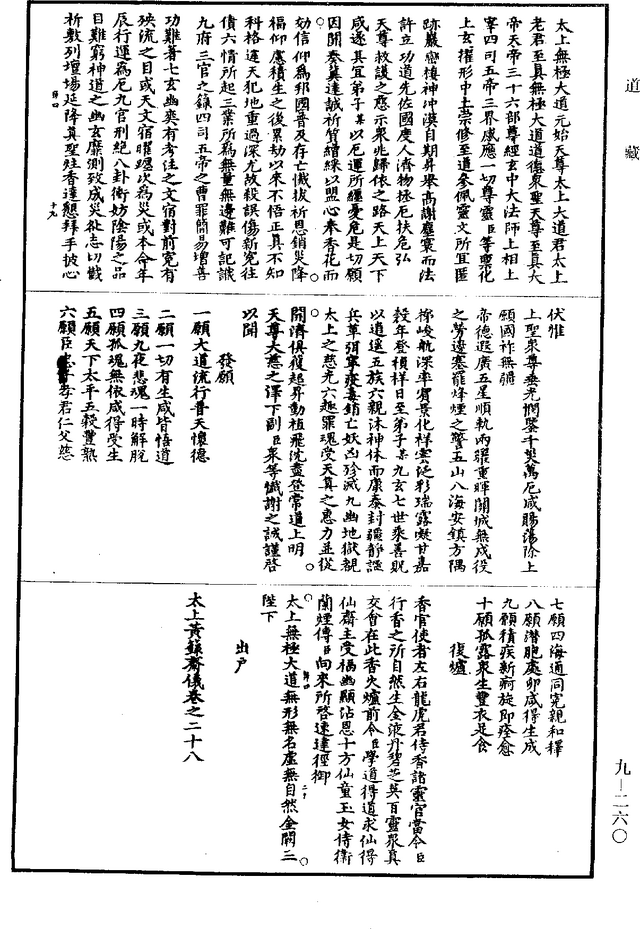 道藏
太上無極大道元始天尊太上大道君太上
老君至真無極大道道德衆聖天尊至真大
帝天帝三十六部尊經玄中大法師上相上
宰四司五帝三界感應一切尊靈臣等聖化
上玄耀形中土崇修至道參佩靈文所宜匿
跡巖巒棲神沖漠自期昇舉高謝塵寰而法
許立功道先佐國度人濟物拯厄扶危弘
天尊救護之慈示衆兆歸依之路天上天下
咸遂其宜弟子某以厄運所纏憂危是切願
因開奏冀達誠祈質繒綵以盟心奉香花而
効信仰爲邦國普及存亡懺拔祈恩銷災降
福仰慮積生之後累劫以來不悟正真不知
科格違天犯地重過深尤故殺誤傷新寃往
債六情所起三業所爲無量無邊難可記識
九府三官之錄四司五帝之曹罪簡易增善
功難著七玄幽爽有考注之文宿對前寃有
殃流之目或天文宿曜躔次為災或本命年
辰行運為厄九宫刑絶八卦衝妨陰陽之品
目難窮神道之幽玄靡測致成災祉志切懺
祈敷列壇場延降真聖炷香達懇拜手披心
伏惟
上聖衆尊垂光憫鑒千災萬厄咸賜蕩除上
願國祚無疆
帝德遐廣五星順軌兩曜重暉關城無戍役
之勞邊塞罷烽煙之警五山八海安鎮方隅
梯峻航深率賓景化祥雲泛彩瑞露凝甘嘉
穀年登禎祥日至弟子某九玄七世乘善貺
以逍遥五族六親沐神休而康泰封疆靜謐
兵革弭寧疫毒銷亡妖凶殄滅九幽地獄覩
太上之慈光六趣罪魂受天真之惠力並從
開濟俱獲起昇動植飛沈盡登常道上明
天尊大慈之澤下副臣衆等懺謝之誠謹啓
以聞
發願
一願大道流行普天懷德
二願一切有生咸皆悟道
三願九夜悲魂一時解脫
四願孤魂無依咸得受生
五願天下太平五穀豐熟
六願臣忠子孝君仁父慈
七願四海通同寃親和釋
八願潛胞處卵咸得生成
九願積疾新痾旋即痊愈
十願孤露衆生豐衣足食
復爐
香官使者左右龍虎君侍香諸靈官當令臣
行香之所自然生金液丹碧芝英百靈衆真
交會在此香火爐前令臣學道得道求仙得
仙齋主受福幽顯沾恩十方仙童玉女侍衛
蘭煙傳臣向來所啓速達徑御
太上無極大道無形無名虛無自然金闕三
陛下
出戶
太上黃籙齋儀卷之二十八
九—二六〇